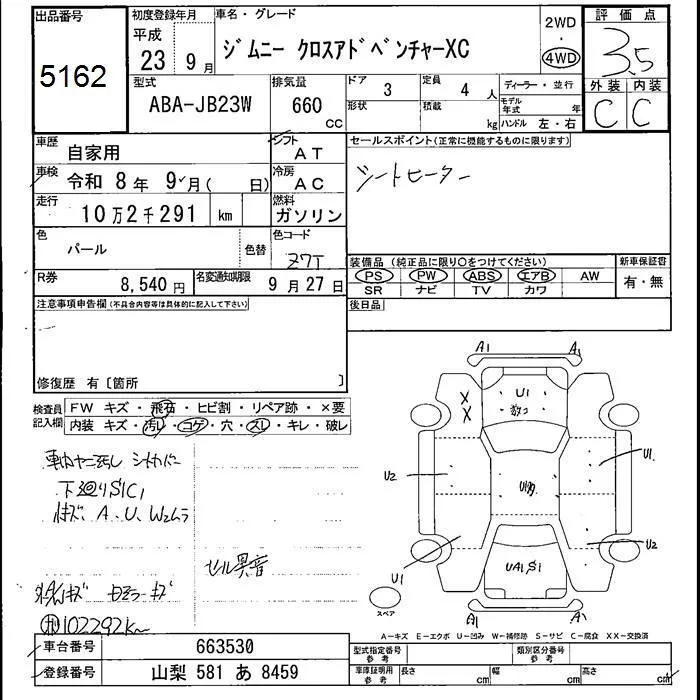 出品番号 初度登録年月 車名・グレード 評価点
5162
平成
23 9月
ジムニー クロスアドベンチャーXC
2WD
・
4WD
3.5
型式 排気量 ドア 定員 ディーラー・並行 外装 内装
ABA-JB23W 660 CC 3 4 人 C C
形状 積載 kg
モデル年式 年
ハンドル 左・右
車歴 自家用 シフト AT
セールスポイント(正常に機能するものに限ります)
車検 令和 8年 9月( 日) 冷房 AC
シートヒーター
走行 10万2千291 km 燃料 ガソリン
色 パール 色替 色コード Z7T
装備品(純正品に限り○をつけてください) 新車保証書
PS PW ABS エアB AW 有・無
SR ナビ TV カワ
R券 8,540円 名変通知期限 9月27日
注意事項申告欄(不具合内容等は具体的に記入して下さい) 後日品
修復歴 有〔箇所 〕
検査員記入欄 FW キズ・飛石・ヒビ割・リペア跡・×要
内装 キズ・汚レ・コゲ・穴・スレ・キレ・破レ
A1 A1
U1
X
X
U1
U2
U1
U2
UA1,S1
A1 A1
スペア
下廻りS1C1
キズ、A、U、W2ムラ
セル異音
102292km
A-キズ E-エクボ U-凹み W-補修跡 S-サビ C-腐食 XX-交換済
車台番号 663530 型式指定番号 参考 類別区分番号 参考
登録番号 山梨 581 あ 8459 車庫証明用 参考 長さ cm 幅 cm 高さ cm